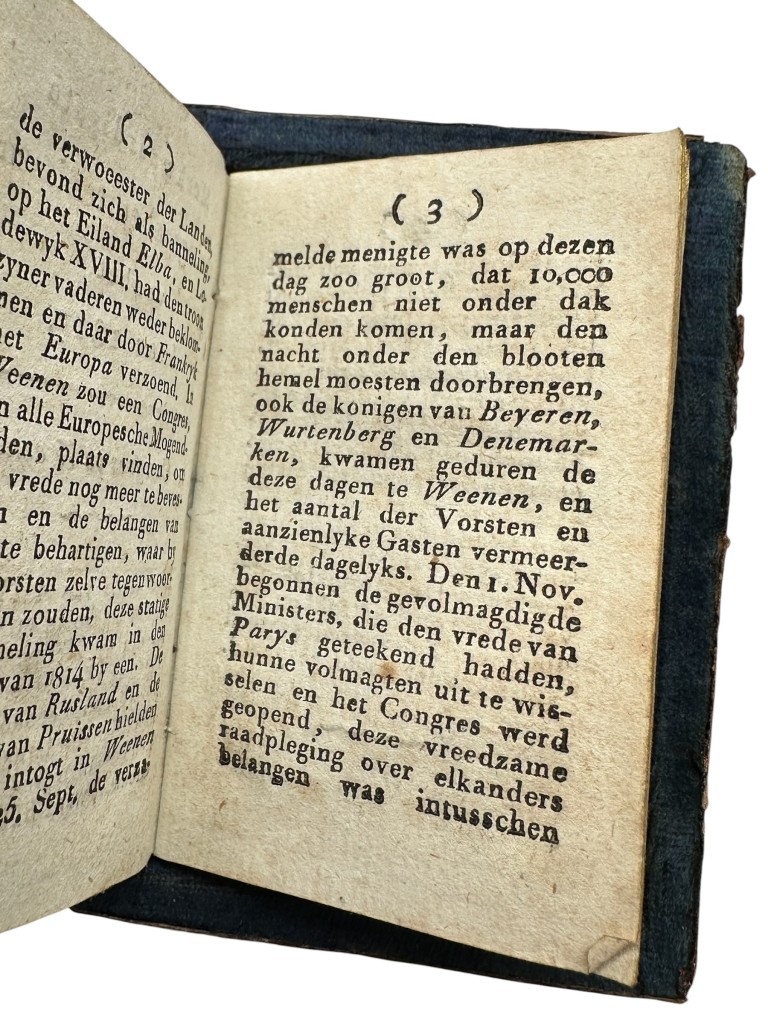 ( 2 )
de verwoeester der Landen,
bevond zich als banneling,
op het Eiland Elba, en Lo-
dewyk XVIII, had den troon
zyner vaderen weder beklom-
men en daar door Frankryk
met Europa verzoend. In
Weenen zou een Congres,
alle Europesche Mogend-
den, plaats vinden, om
vrede nog meer te beves-
en de belangen van
te behartigen, waar by
orsten zelve tegenwoor-
n zouden, deze statige
neling kwam in den
van 1814 by een. De
van Rusland en de
van Pruissen hielden
intogt in Weenen
25. Sept. de verza-
( 3 )
melde menigte was op dezen
dag zoo groot, dat 10,000
menschen niet onder dak
konden komen, maar den
nacht onder den blooten
hemel moesten doorbrengen,
ook de konigen van Beyeren,
Wurtenberg en Denemar-
ken, kwamen geduren de
deze dagen te Weenen, en
het aantal der Vorsten en
aanzienlyke Gasten vermeer-
derde dagelyks. Den 1. Nov.
begonnen de gevolmagdigde
Ministers, die den vrede van
Parys geteekend hadden,
hunne volmagten uit te wis-
selen en het Congres werd
geopend, deze vreedzame
raadpleging over elkanders
belangen was intusschen